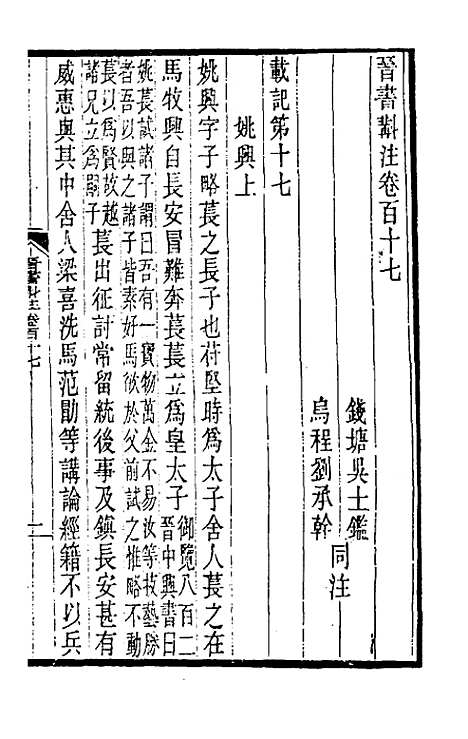 晉書斠注卷百十七
錢塘吳士鑑
烏程劉承幹
同注
載記第十七
姚興上
姚興字子略萇之長子也苻堅時爲太子舍人萇之在
馬牧興自長安冒難奔萇萇立爲皇太子
御覽八百二
晉中興書曰
姚萇誡諸子謂曰吾有一寶物萬金不易汝等技藝勝
者吾以與之諸子皆素好馬欲於父前試之惟略不動
萇以爲賢故越
諸兄立爲嗣子
萇出征討常留統後事及鎮長安甚有
威惠與其中舍人梁喜洗馬范勖等講論經籍不以兵
晉書斠注卷百十七
一